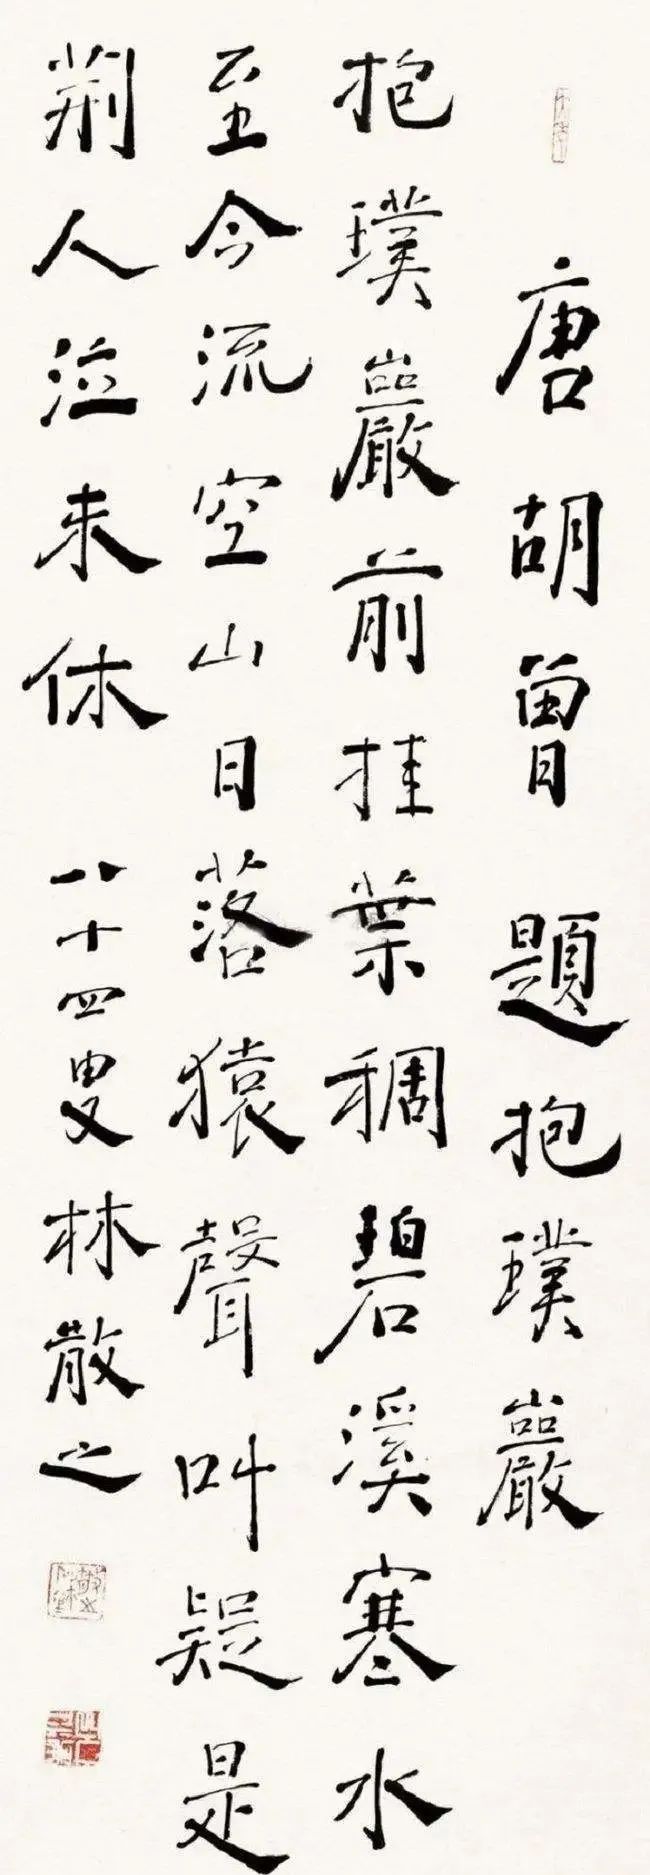 唐胡曾題抱璞巖
抱璞巖前桂葉稠碧溪寒水
至今流空山日落猿聲叫疑是
荆人泣未休八十四叟林散之